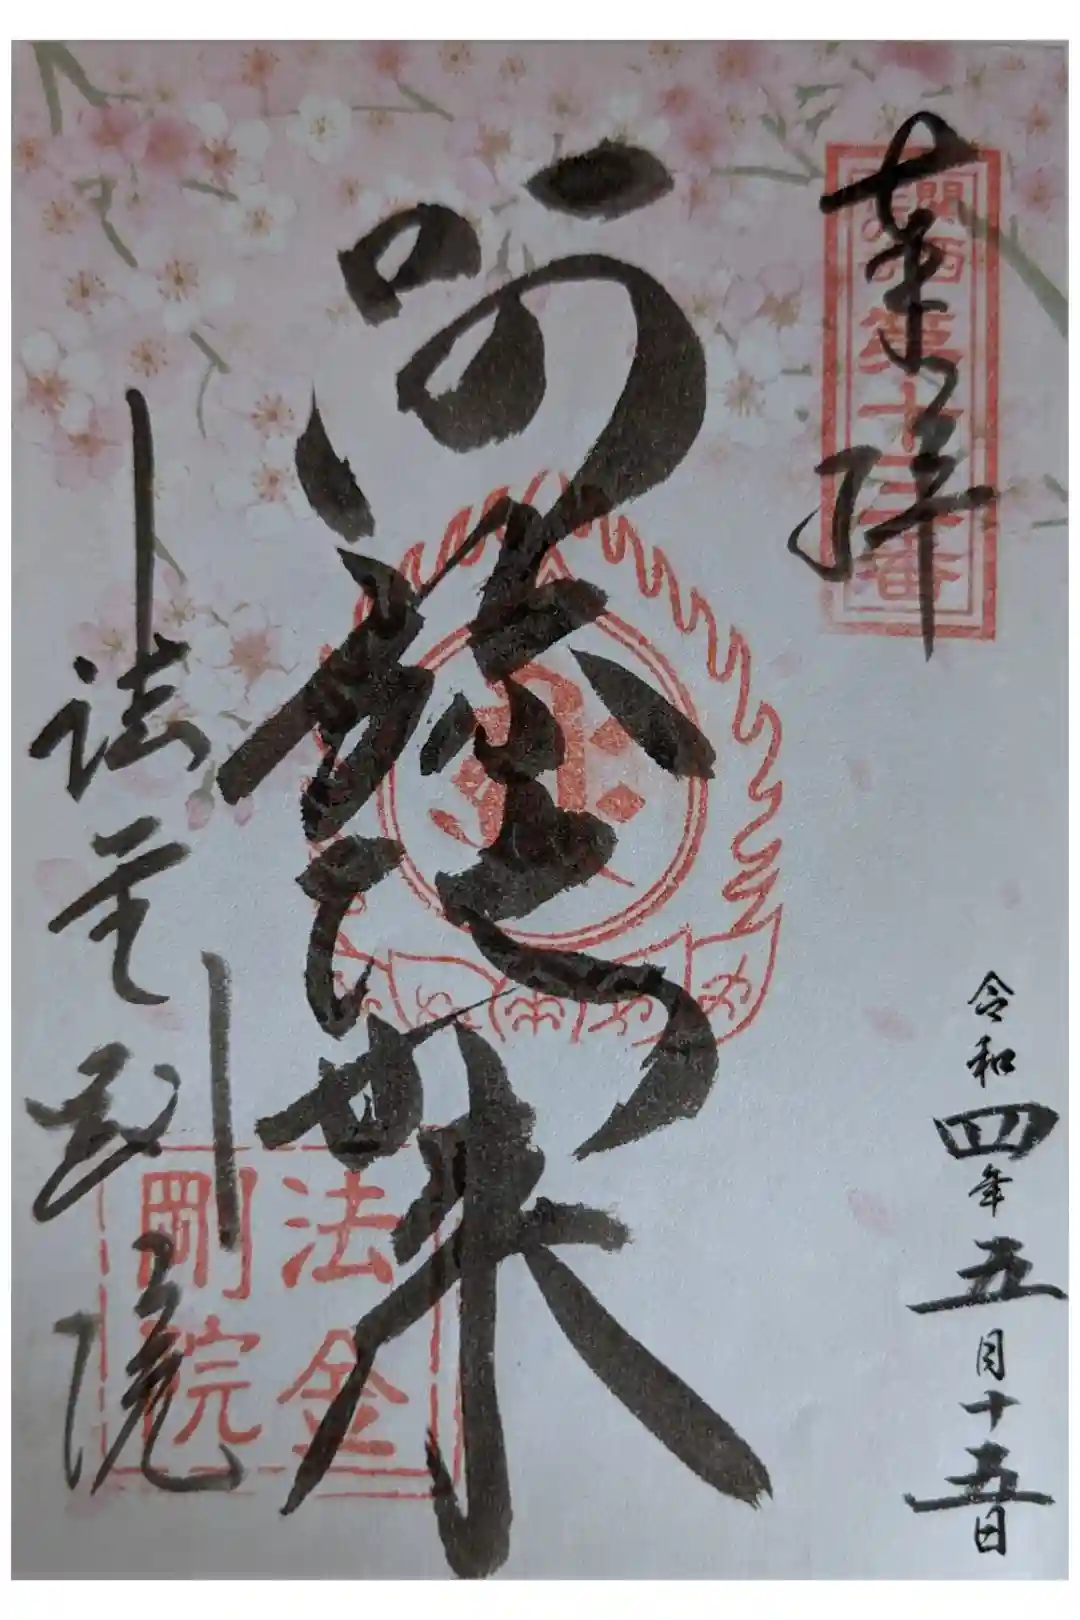 奉拝
關西
花の寺
第十三番
令和四年五月十五日
阿弥陀如来
法金剛院
法金
剛院